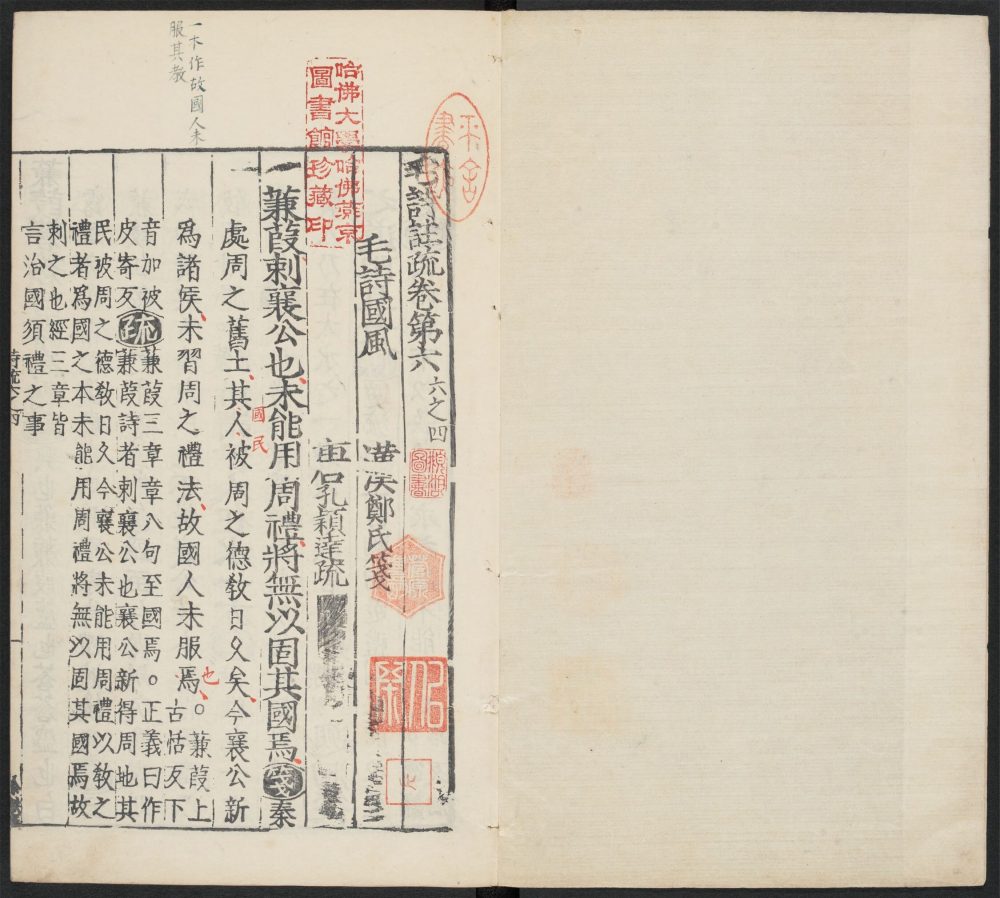 毛詩註疏卷第六 六之四
毛詩國風
漢鄭氏箋
孔穎達疏
蒹葭刺襄公也未能用周禮將無以固其國焉 箋 秦
處周之舊土其人被周之德教日久矣今襄公新
國民
爲諸侯未習周之禮法故國人未服焉
也
○蒹葭上
古恬反下
音加被
皮寄反 疏 蒹葭三章章八句至國焉。正義曰作
蒹葭詩者刺襄公也襄公新得周地其
民被周之德教日久今襄公未能用周禮以教之
禮者爲國之本未能用周禮將無以固其國焉故
刺之也經三章皆
言治國須禮之事
一本作故國人未
服其教
哈佛大學哈佛燕京
圖書館珍藏印